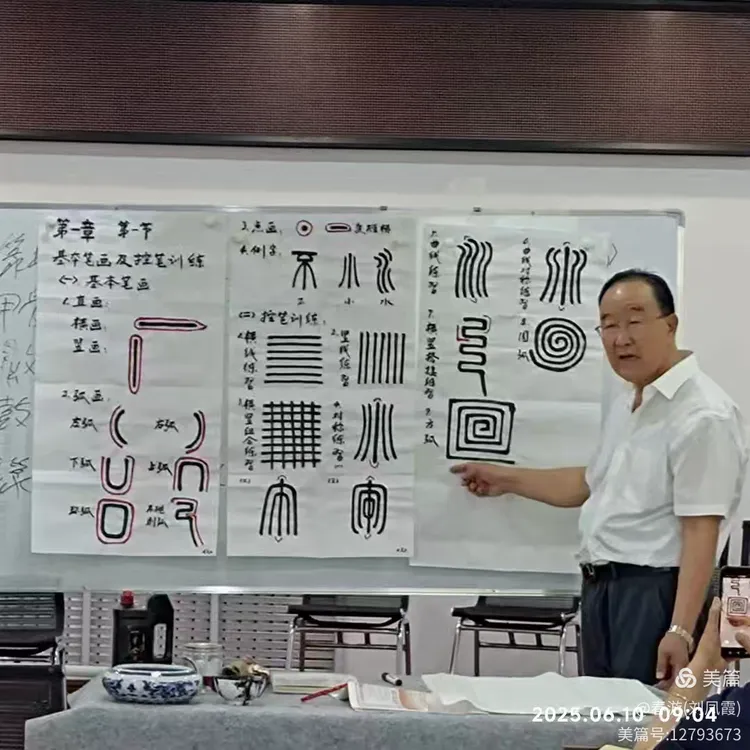 第一章 第一节
基本笔画及控笔训练
(一)基本笔画
1.直画:
横画:
竖画:
2.弧画:
左弧
右弧
下弧
上弧
3.点画:
4.例字:
不
小
水
(二)控笔训练:
1.横线练习
2.竖线练习
3.横竖组合练习
4.对称练习(一)
(2)
(3)
5.曲线练习
6.曲线对称练习
7.横竖搭接练习
8.圆弧
9.方弧
美篇
@春游(刘凤霞)
2025.06.10 09:04
美篇号:12793673